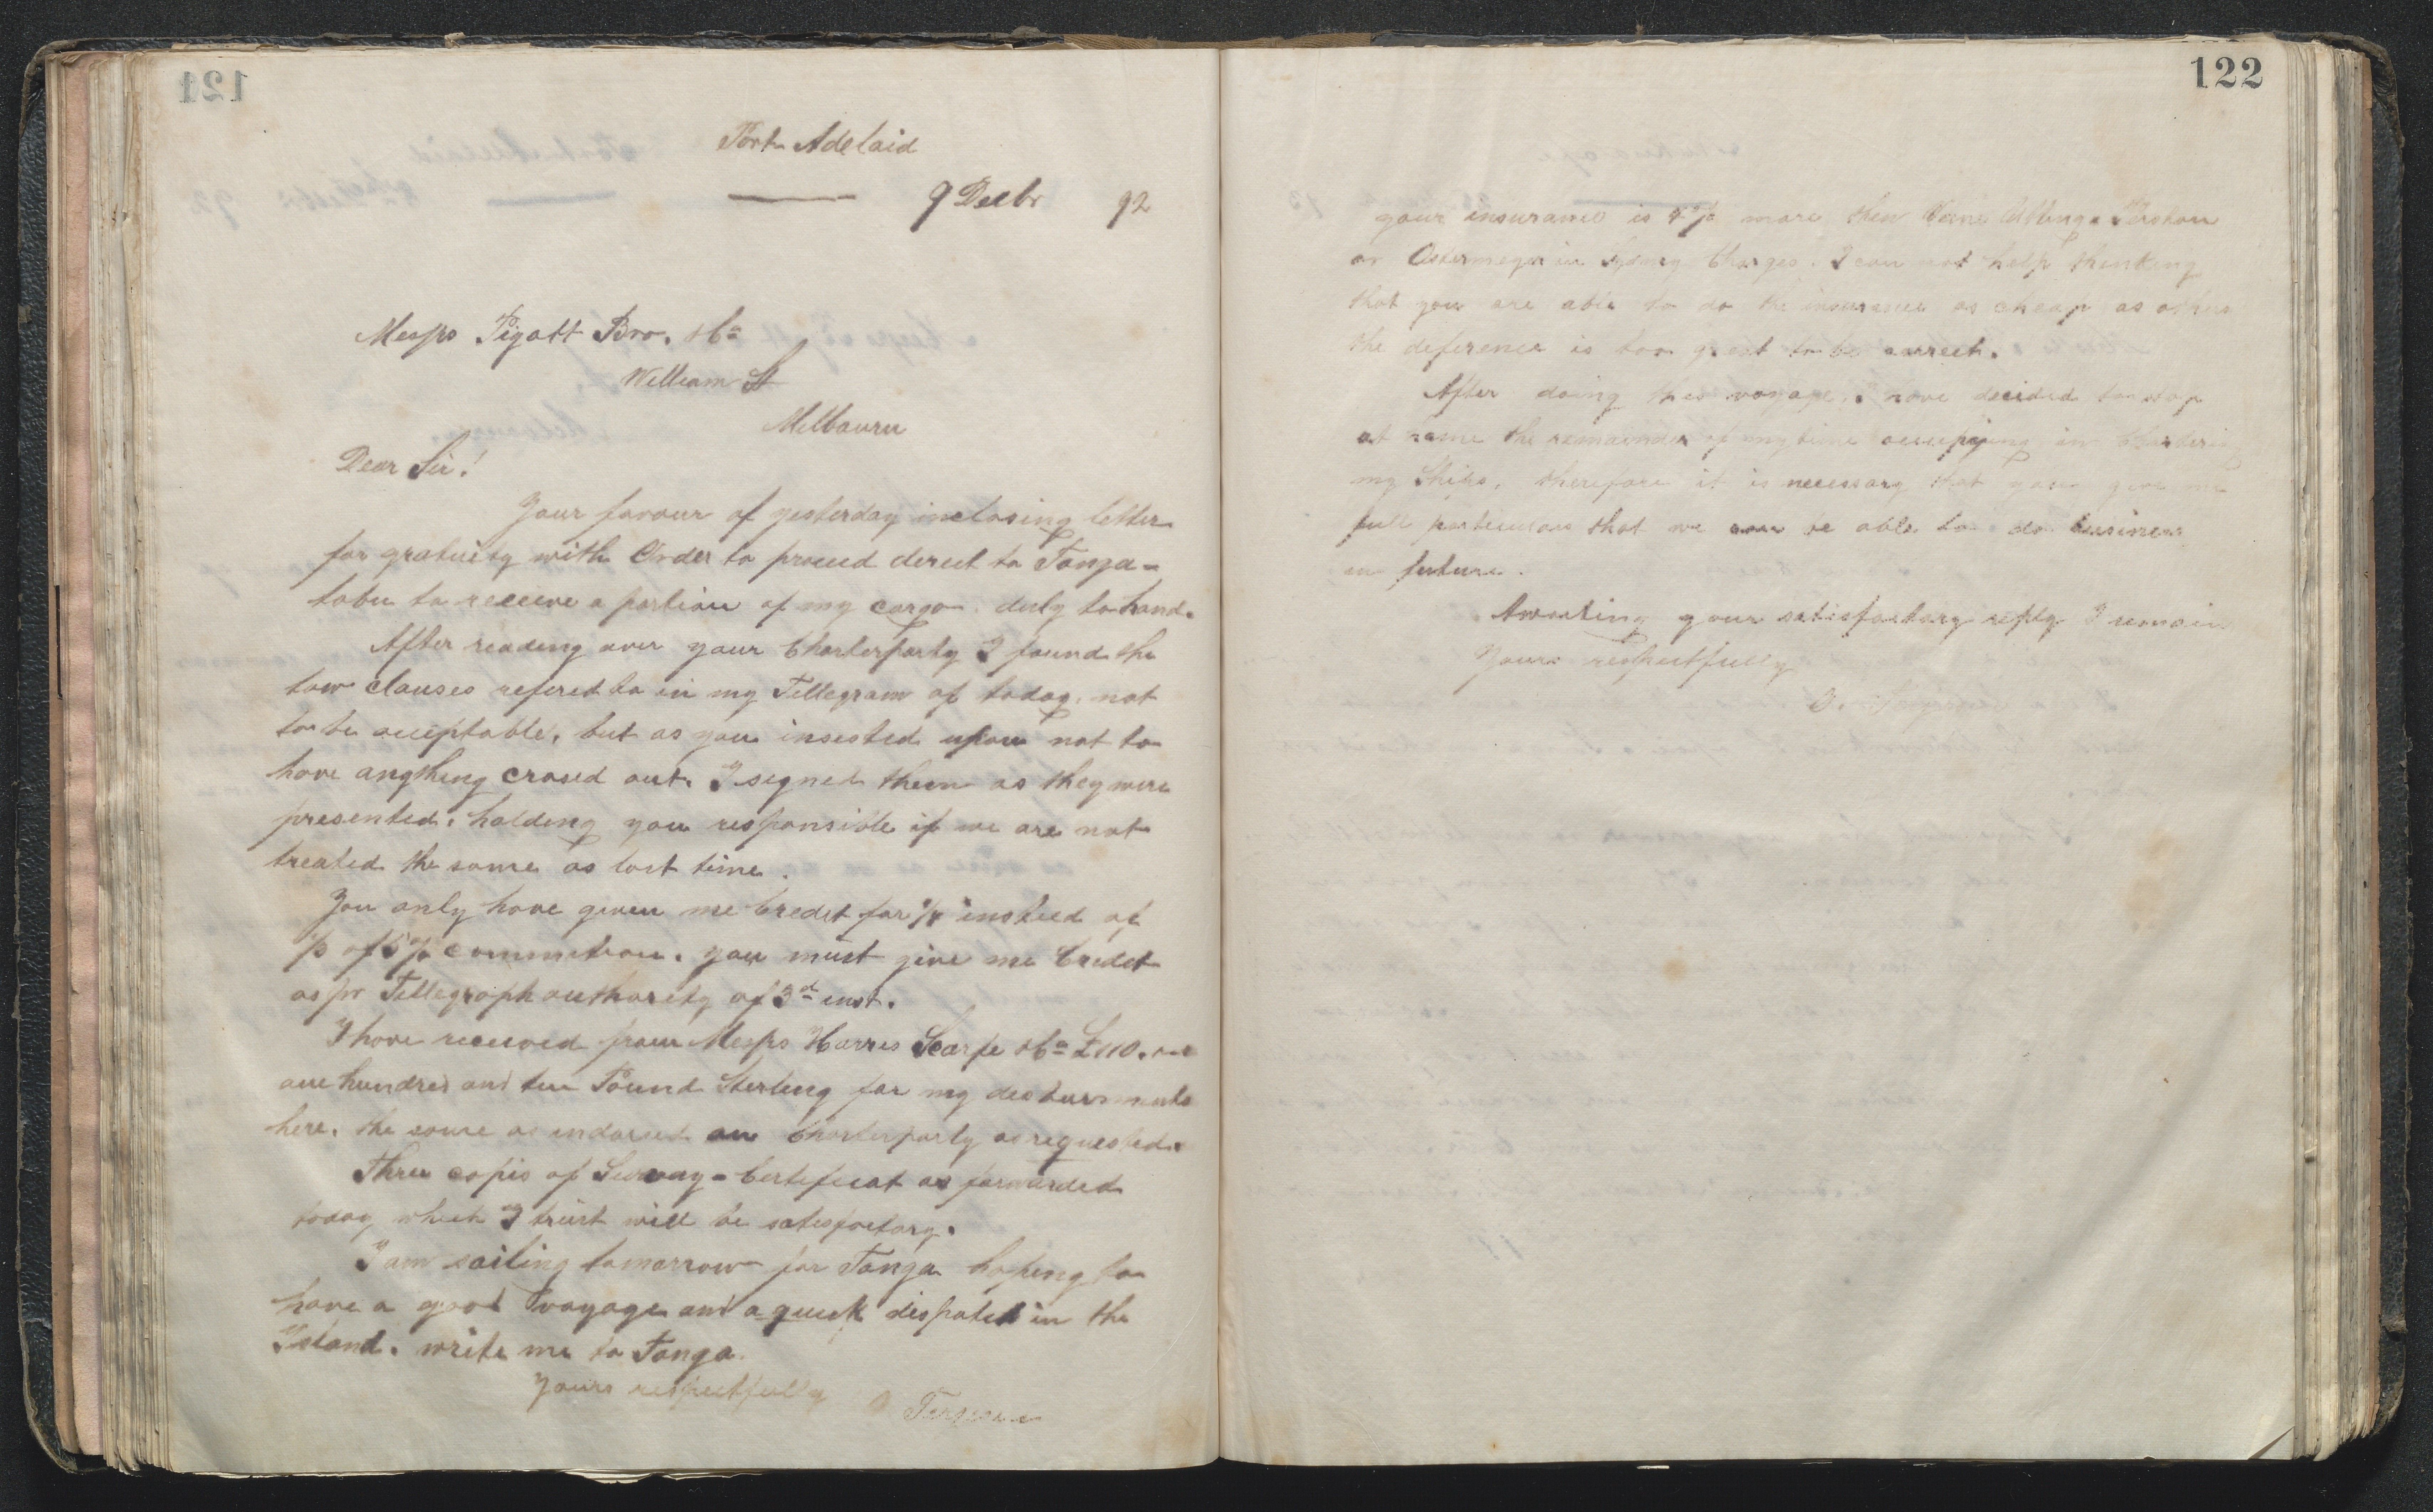 121
Port Adelaid
9 Decbr 92
Messrs Pigott Bro. & Co
William St
Melbourn
Dear Sir!
Your favour of yesterday inclosing letter
for gratuity with Order to proceed derect to Tonga-
tabu to receive a portion of my cargo. duly to hand.
After reading over your Charterparty I found the
tow clauses refered to in my Tellegram of today. not
to be acceptable, but as you insested upon not to
have anything crosed out. I signed them as they were
presented. holding you responsible if we are not
treated the same as last time.
You only have given me Credit for insteed of
of 5% you must give me Credit
as pr Tellegraph authorety of 3d inst.
I have received from Messrs Harres Scarfe & Co £110.
one hundred and ten Pound Sterling for my desbursments
here. the same as endorsed on Charterparty as requested.
Three copis of Survay-Certeficat as forwarded
today which I trust will be satesfactory.
I am sailing tomorrow for Tonga hoping to
have a good voyage and a quick dispatch in the
Island. write me to Tonga.
Yours respectfully
122
your insurance is 4% more then
or Ostermeyer in Sydney Charges. I can not help thinking
that you are able to do the insurance as cheap as others
the deference is too great to be correct.
After doing this voyage. I have decided to stop
at home the remainder of my time in Chartering
my Ships, therefore it is necessary that you give me
full particulars that we can be able to do business
in future.
Awaiting your satisfactory reply I remain
Yours respectfully